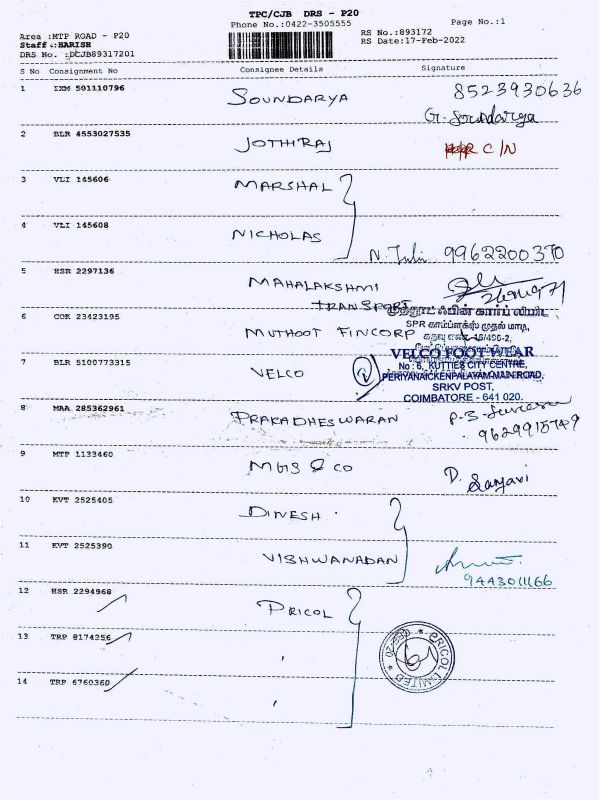 TPC/CJB DRS - P20
Phone No.:0422-3505555
Page No.:1
Area :MTP ROAD - P20
RS No.:893172
Staff :HARISH
RS Date:17-Feb-2022
DRS No. :DCJB89317201
S No Consignment No Consignee Details Signature
1 IXM 501110796 SOUNDARYA 8523930636
G. Soundarya
2 BLR 4553027535 JOTHIRAJ C/N
3 VLI 145606 MARSHAL
4 VLI 145608 NICHOLAS N. 9962200370
5 HSR 2297136 MAHALAKSHMI
TRANSPORT
முத்தூட் ஃபின் கார்ப் லிமிட்
6 COK 23423195 MUTHOOT FINCORP
SPR காம்ப்ளக்ஸ் முதல் மாடி,
கதவு எண்
7 BLR 5100773315 VELCO
VELCO FOOT WEAR
No : 6, KUTTIES CITY CENTRE,
PERIYANAICKENPALAYAM MAIN ROAD,
SRKV POST,
COIMBATORE - 641 020.
8 MAA 285362961 PRAKADHESWARAN P.B.
9 MTP 1133460 MGS & CO D. Sanjavi
10 KVT 2525405 DINESH
11 KVT 2525390 VISHWANADAN
9443011166
12 HSR 2294968 PRICOL
13 TRP 8174256 "
14 TRP 6760360 "
PRICOL LIMITED